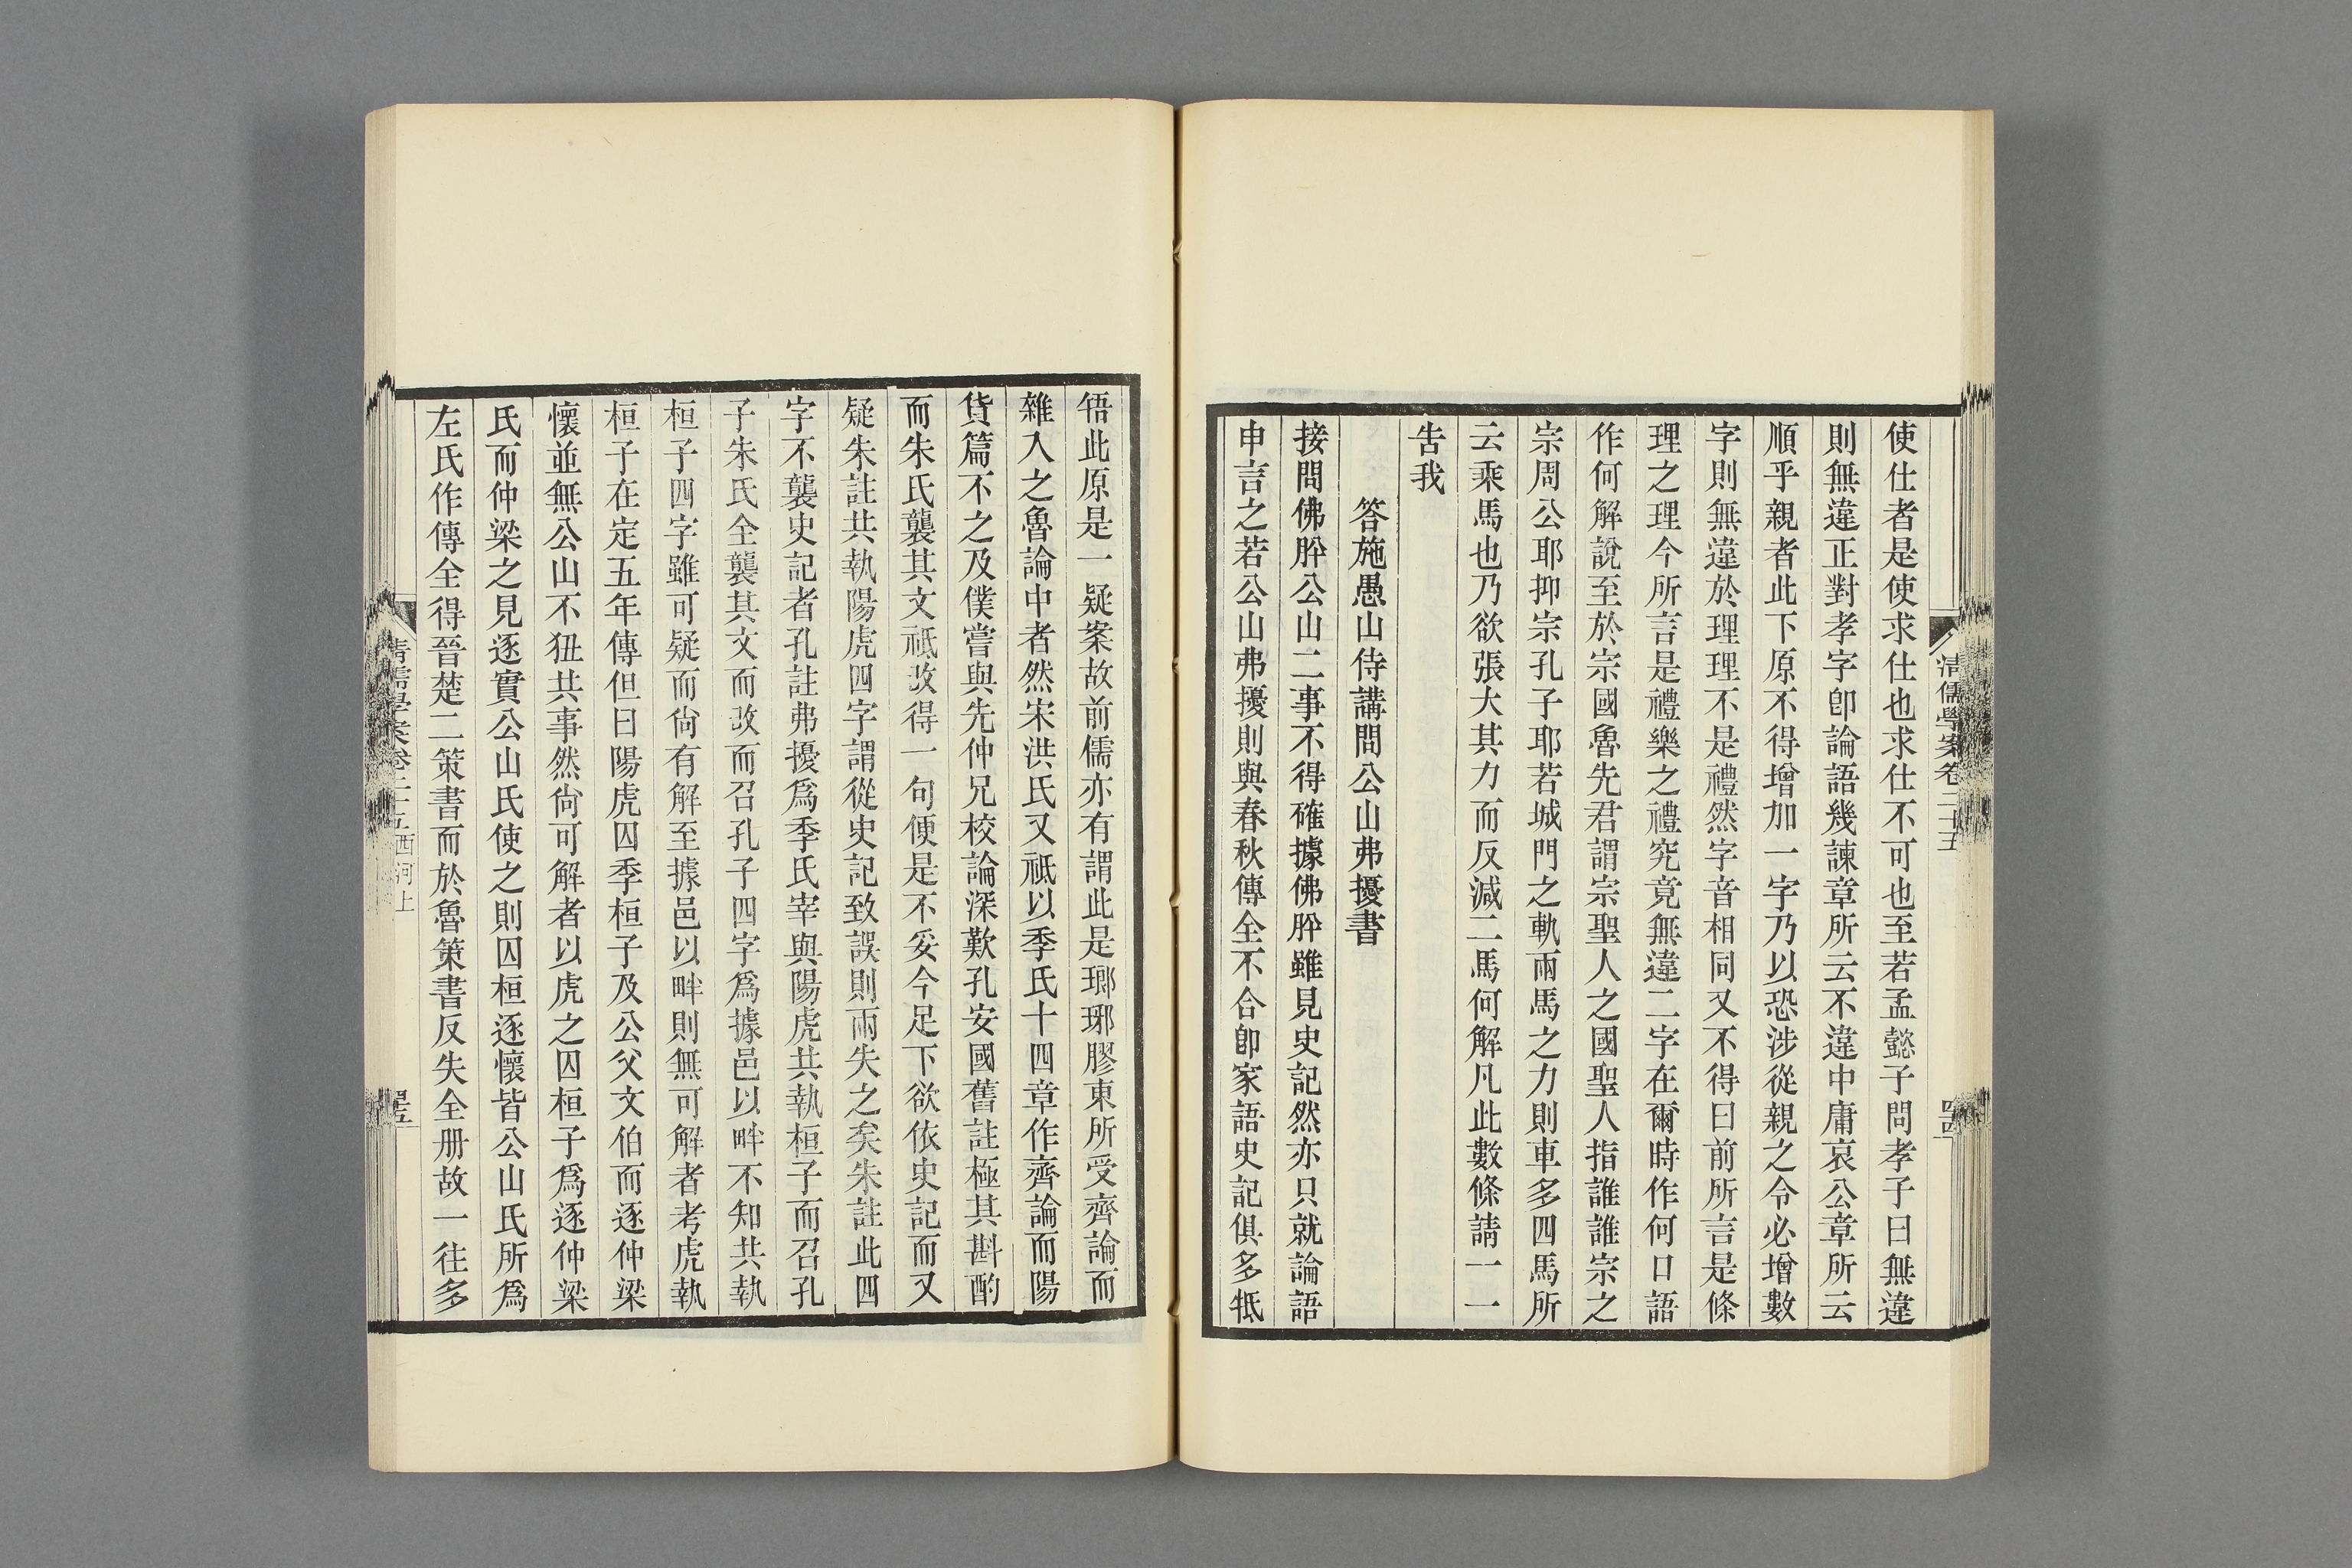 清儒學案卷二十五
使仕者是使求仕也求仕不可也至若孟懿子問孝子曰無違
則無違正對孝字卽論語幾諫章所云不違中庸哀公章所云
順乎親者此下原不得增加一字乃以恐涉從親之令必增數
字則無違於理理不是禮然字音相同又不得曰前所言是條
理之理今所言是禮樂之禮究竟無違二字在爾時作何口語
作何解說至於宗國魯先君謂宗聖人之國聖人指誰誰宗之
宗周公耶抑宗孔子耶若城門之軌兩馬之力則車多四馬所
云乘馬也乃欲張大其力而反減二馬何解凡此數條請一一
告我
答施愚山侍講問公山弗擾書
接問佛肸公山二事不得確據佛肸雖見史記然亦只就論語
申言之若公山弗擾則與春秋傳全不合卽家語史記俱多牴
牾此原是一疑案故前儒亦有謂此是瑯琊膠東所受齊論而
雜入之魯論中者然宋洪氏又祗以季氏十四章作齊論而陽
貨篇不之及僕嘗與先仲兄校論深歎孔安國舊註極其斟酌
而朱氏襲其文祗改得一句便是不妥今足下欲依史記而又
疑朱註共執陽虎四字謂從史記致誤則兩失之矣朱註此四
字不襲史記者孔註弗擾爲季氏宰與陽虎共執桓子而召孔
子朱氏全襲其文而改而召孔子四字爲據邑以畔不知共執
桓子四字雖可疑而尙有解至據邑以畔則無可解者考虎執
桓子在定五年傳但曰陽虎囚季桓子及公父文伯而逐仲梁
懷並無公山不狃共事然尙可解者以虎之囚桓子爲逐仲梁
氏而仲梁之見逐實公山氏使之則囚桓逐懷皆公山氏所爲
左氏作傳全得晉楚二策書而於魯策書反失全册故一往多
清儒學案卷二十五 西河上